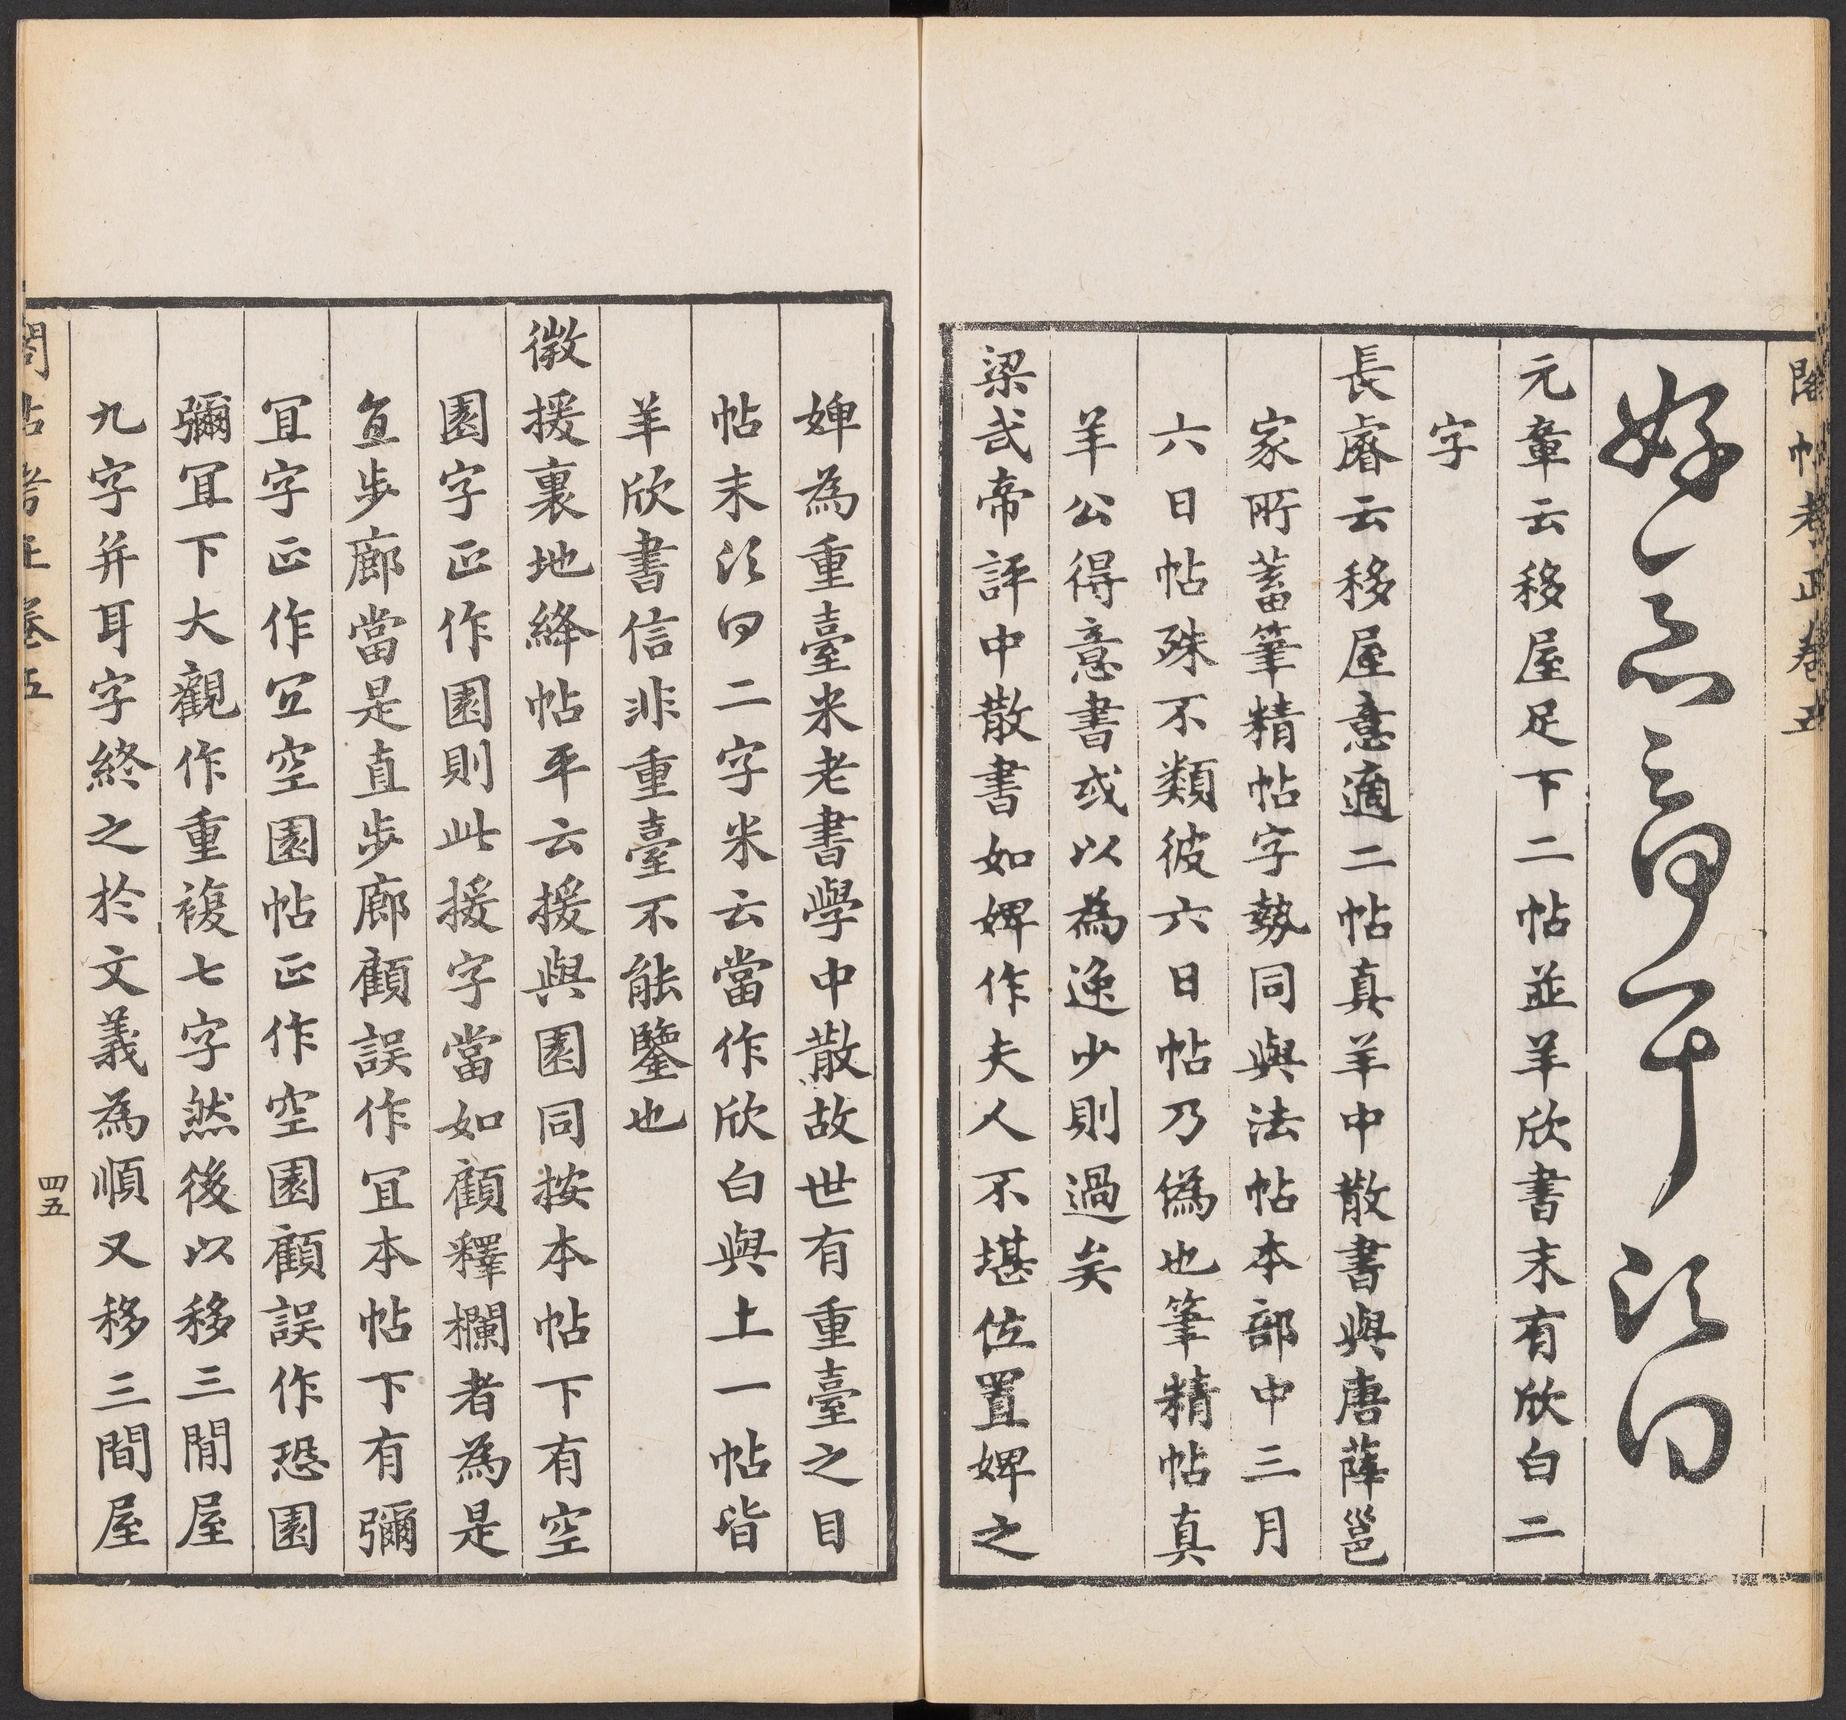 閣帖考正卷五
元章云移屋足下二帖並羊欣書末有欣白二
字
長睿云移屋意適二帖真羊中散書與唐薛邕
家所蓄筆精帖字勢同與法帖本部中三月
六日帖殊不類彼六日帖乃偽也筆精帖真
羊公得意書或以為逸少則過矣
梁武帝評中散書如婢作夫人不堪位置婢之
婢為重臺米老書學中散故世有重臺之目
帖末二字米云當作欣白與土一帖皆
羊欣書信非重臺不能鑒也
徵援裏地絳帖平云援與園同按本帖下有空
園字正作園則此援字當如顧釋欄者為是
亘步廊當是直步廊顧誤作冝本帖下有彌
冝字正作冝空園帖正作空園顧誤作恐園
彌冝下大觀作重複七字然後以移三間屋
九字并耳字終之於文義為順又移三間屋
閣帖考正卷五
四五